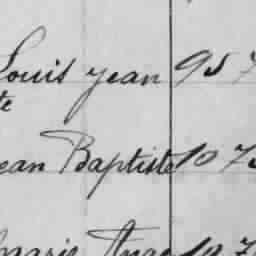 Louis jean 95 7
te
ean Baptiste 10 75
marie Ange 10 7